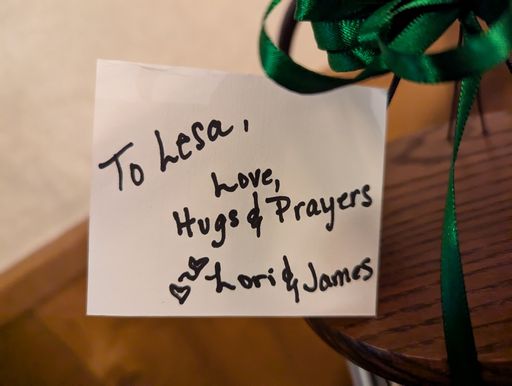 To Lesa,
Love,
Hugs & Prayers
Lori & James